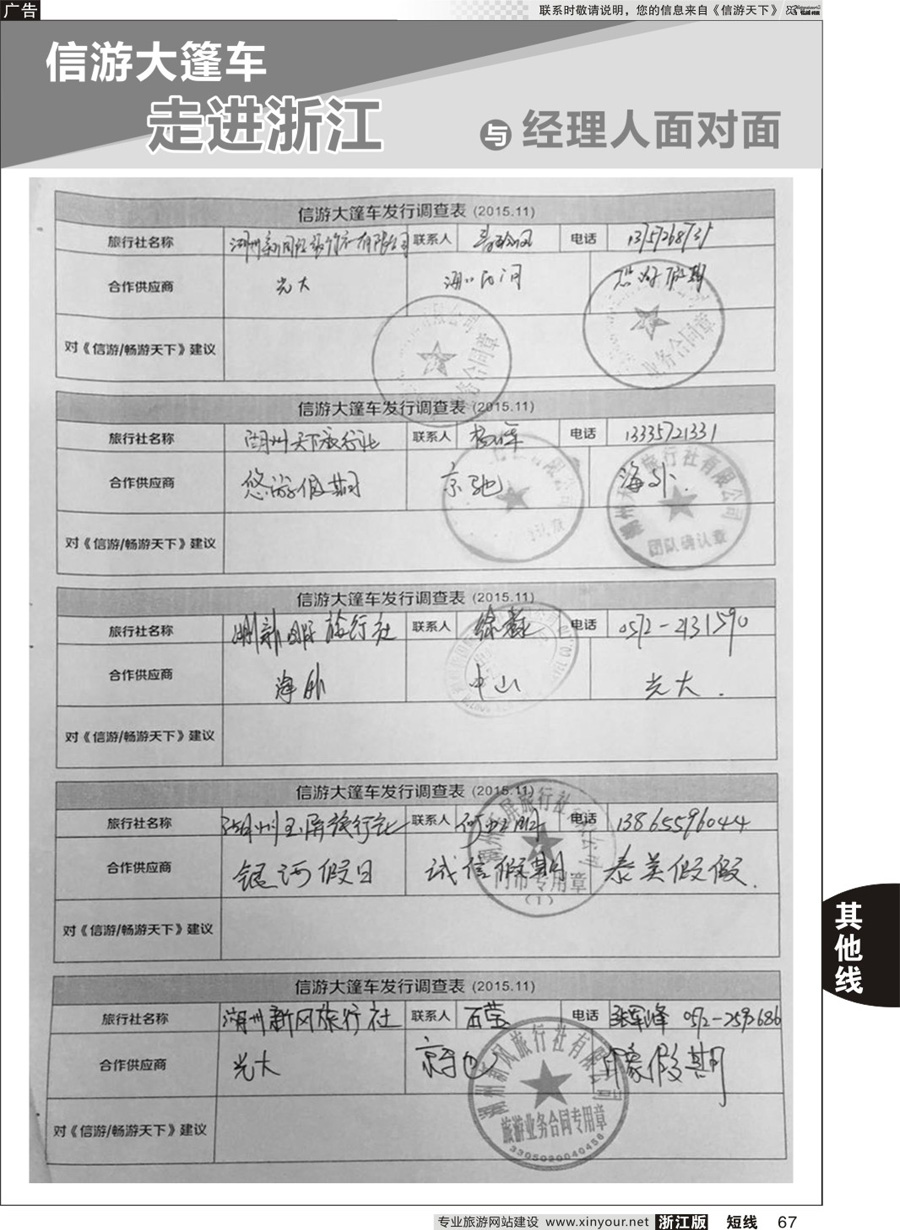 广告
联系时敬请说明，您的信息来自《信游天下》
信游大篷车
走进浙江
与 经理人面对面
信游大篷车发行调查表 (2015.11)
旅行社名称 联系人 电话
合作供应商 光大
对《信游/畅游天下》建议
信游大篷车发行调查表 (2015.11)
旅行社名称 湖州天下旅行社 联系人 杨萍 电话 13335721331
合作供应商 悠游假期 京驰 海外.
对《信游/畅游天下》建议
团队确认章
信游大篷车发行调查表 (2015.11)
旅行社名称 旅行社 联系人 徐 电话 0572-2131590
合作供应商 海外 中山 光大.
对《信游/畅游天下》建议
信游大篷车发行调查表 (2015.11)
旅行社名称 湖州玉屏旅行社 联系人 何 明 电话 13865596044
合作供应商 银河假日 诚信假期 泰美假假.
门市专用章
(1)
对《信游/畅游天下》建议
信游大篷车发行调查表 (2015.11)
旅行社名称 湖州新风旅行社 联系人 石莹 电话 张军峰 0572-2593686
合作供应商 光大 京驰 印象假期
湖州新风旅行社有限公司
旅游业务合同专用章
3305020040456
对《信游/畅游天下》建议
其他线
专业旅游网站建设 www.xinyour.net 浙江版 短线 67